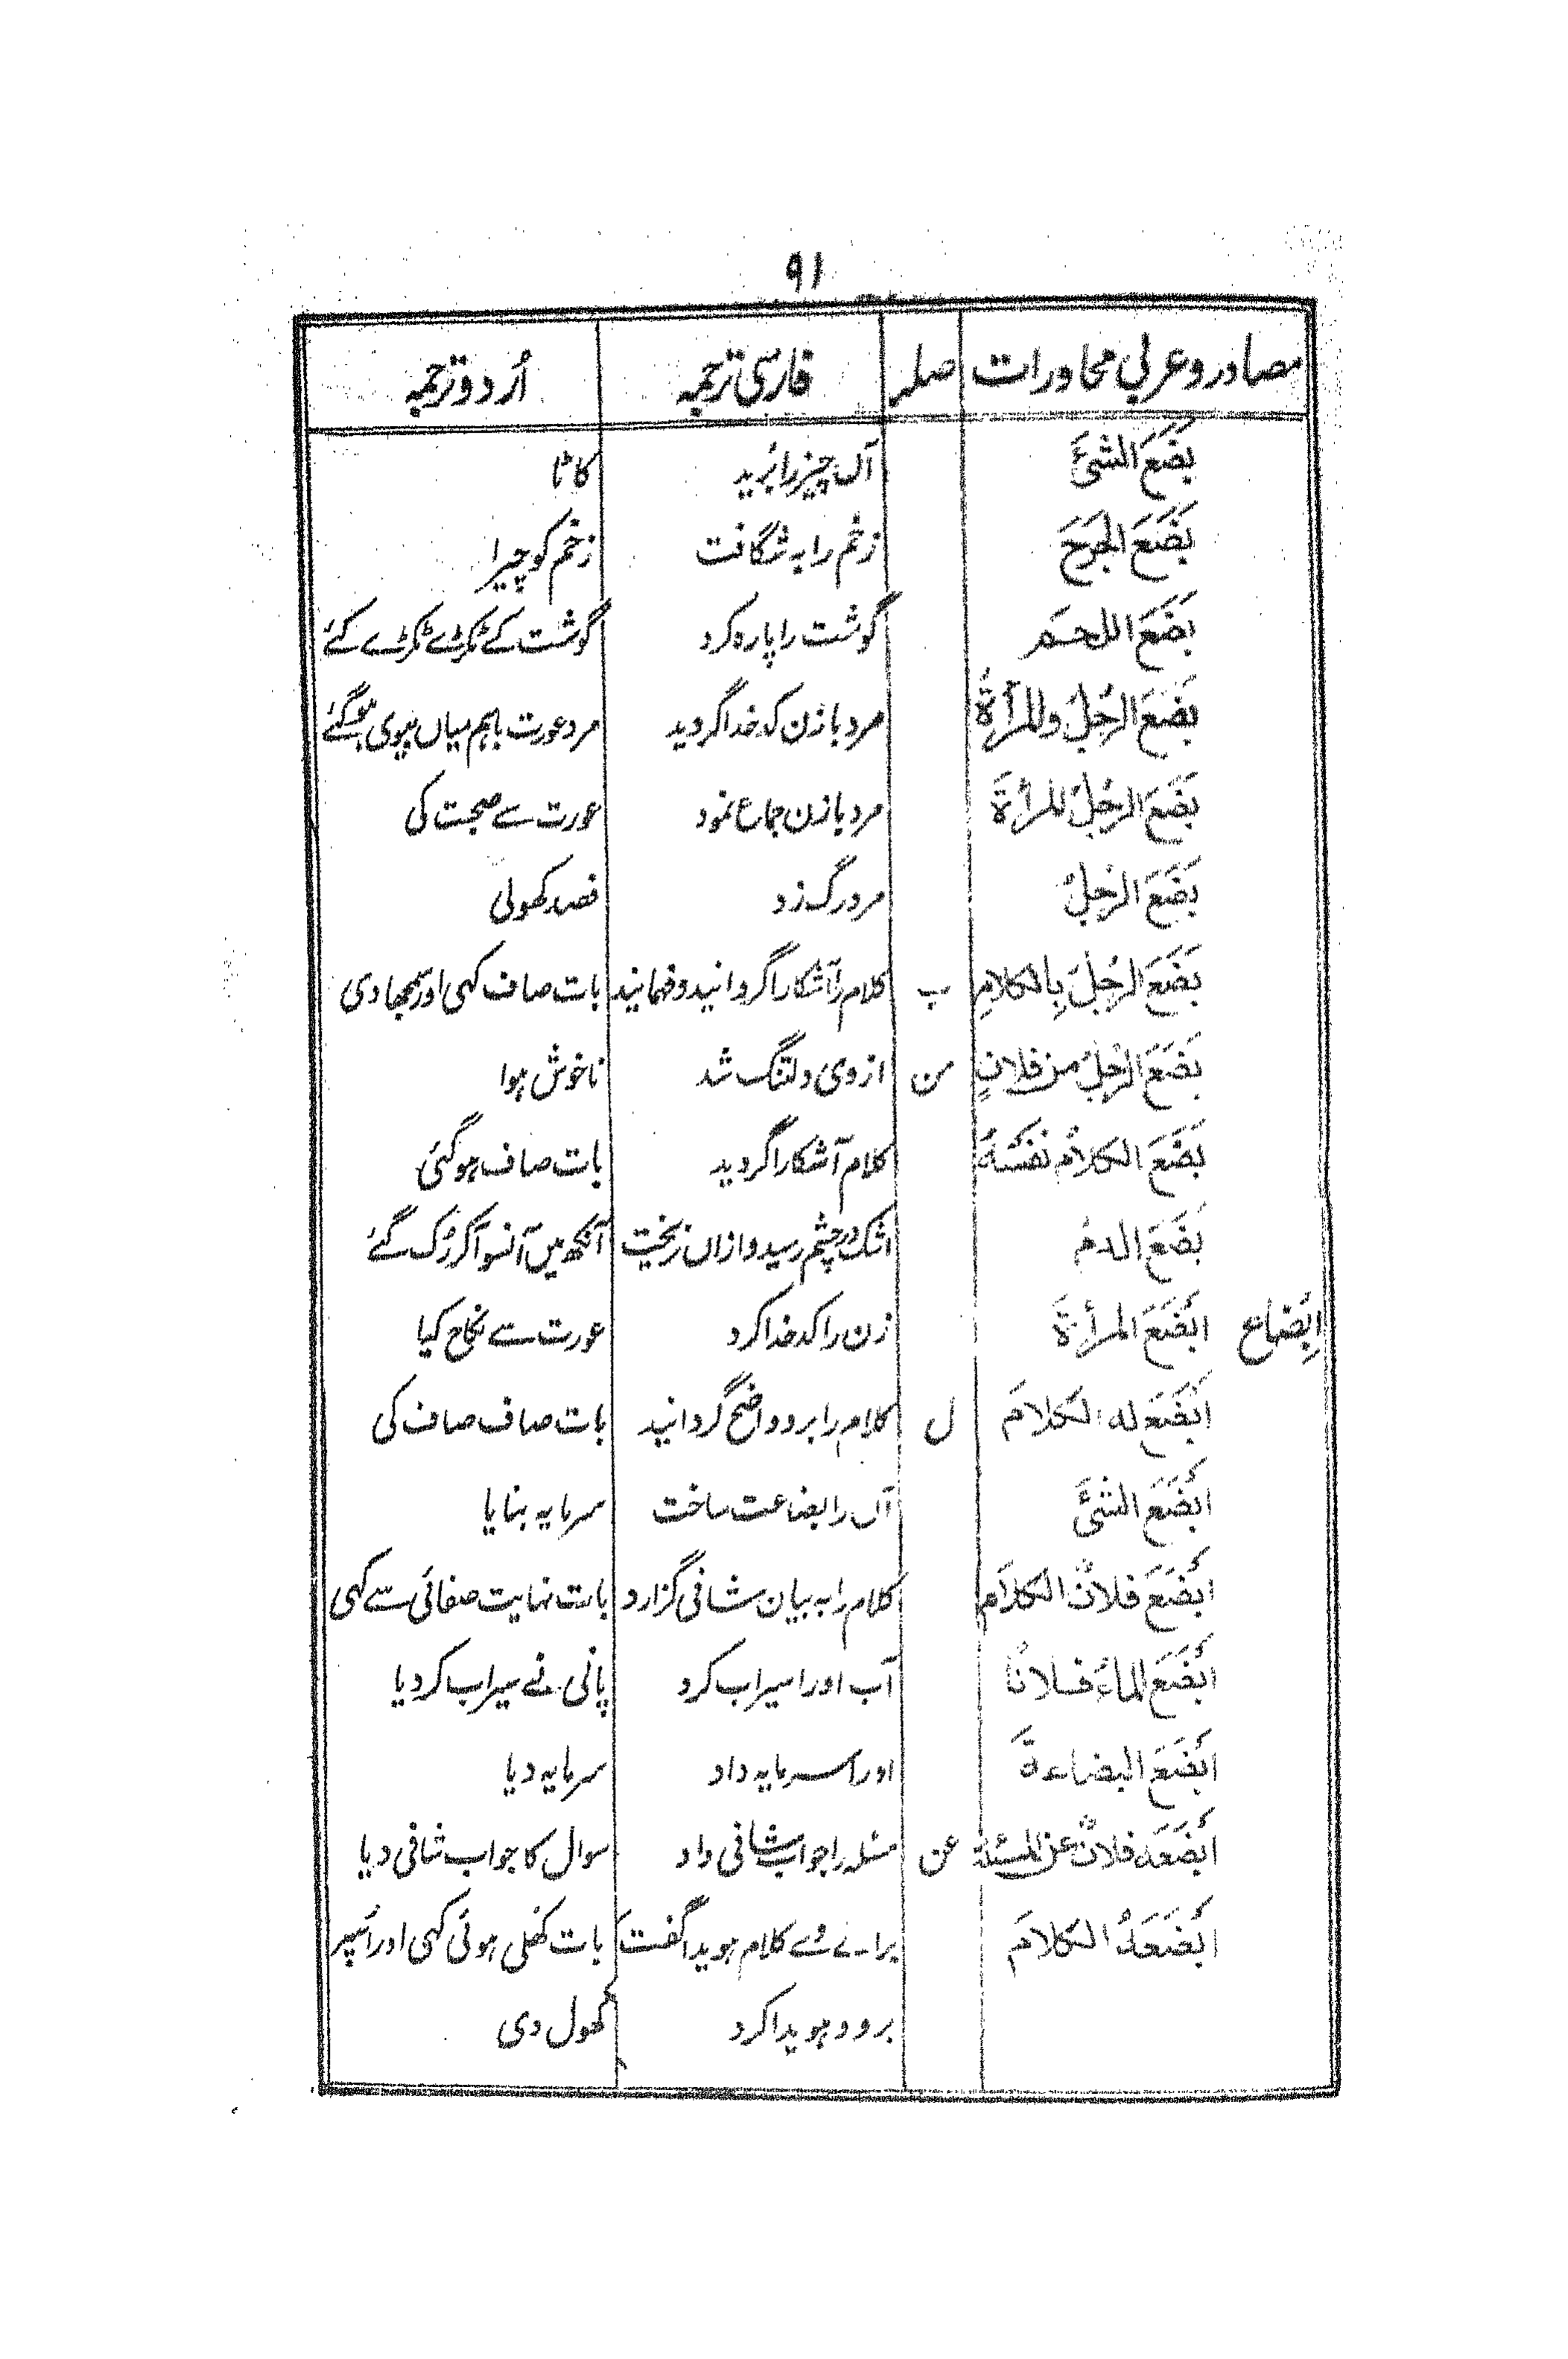 ۹۱
مصادر و عربی محاورات صلہ فارسی ترجمہ اُردو ترجمہ
بَضَعَ الشَّیَٔ آں چیز را بُرید کاٹا
بَضَعَ الجَرحَ زخم را بہ شگافت زخم کو چیرا
بَضَعَ اللحم گوشت را پارہ کرد گوشت کے ٹکڑے ٹکڑے کئے
بَضَعَ الرجُلُ والمرأۃُ مرد با زن کدخدا گردید مرد عورت باہم میاں بیوی ہوگئے
بَضَعَ الرجُلُ للمرأۃَ مرد با زن جماع نمود عورت سے صحبت کی
بَضَعَ الرجُلُ مرد رگ زد فصد کھولی
بَضَعَ الرجُلَ بِالکلامِ ب کلام را آشکارا گردانید و فہمانید بات صاف کہی اور سمجھا دی
بَضَعَ الرجُلُ من فلانٍ من از وی دلتنگ شد ناخوش ہوا
بَضَعَ الکلامُ نفسُہُ کلام آشکارا گردید بات صاف ہوگئی
بَضَعَ الدمُ اشک در چشم رسید و ازاں نریخت آنکھ میں آنسو آکر رُک گئے
اِبْضاع اَبْضَعَ المرأۃَ زن را کدخدا کرد عورت سے نکاح کیا
اَبْضَعَ لہ الکلامَ ل کلام را برو واضح گردانید بات صاف صاف کی
اَبْضَعَ الشیَٔ آں را بضاعت ساخت سرمایہ بنایا
اَبْضَعَ فلانٌ الکلامَ کلام را بہ بیان شافی گزارد بات نہایت صفائی سے کہی
اَبْضَعَ الماءُ فلانًا آب او را سیراب کرد پانی نے سیراب کردیا
اَبْضَعَ البضاعۃَ او را سرمایہ داد سرمایہ دیا
اَبْضَعَہ فلانٌ عن المسئلۃ عن مسئلہ را جواب شافی داد سوال کا جواب شافی دیا
اَبْضَعَہُ الکلامَ برائے وے کلام ہویدا گفت بات کُھلی ہوئی کہی اور اُسپر
برو ہویدا کرد کھول دی